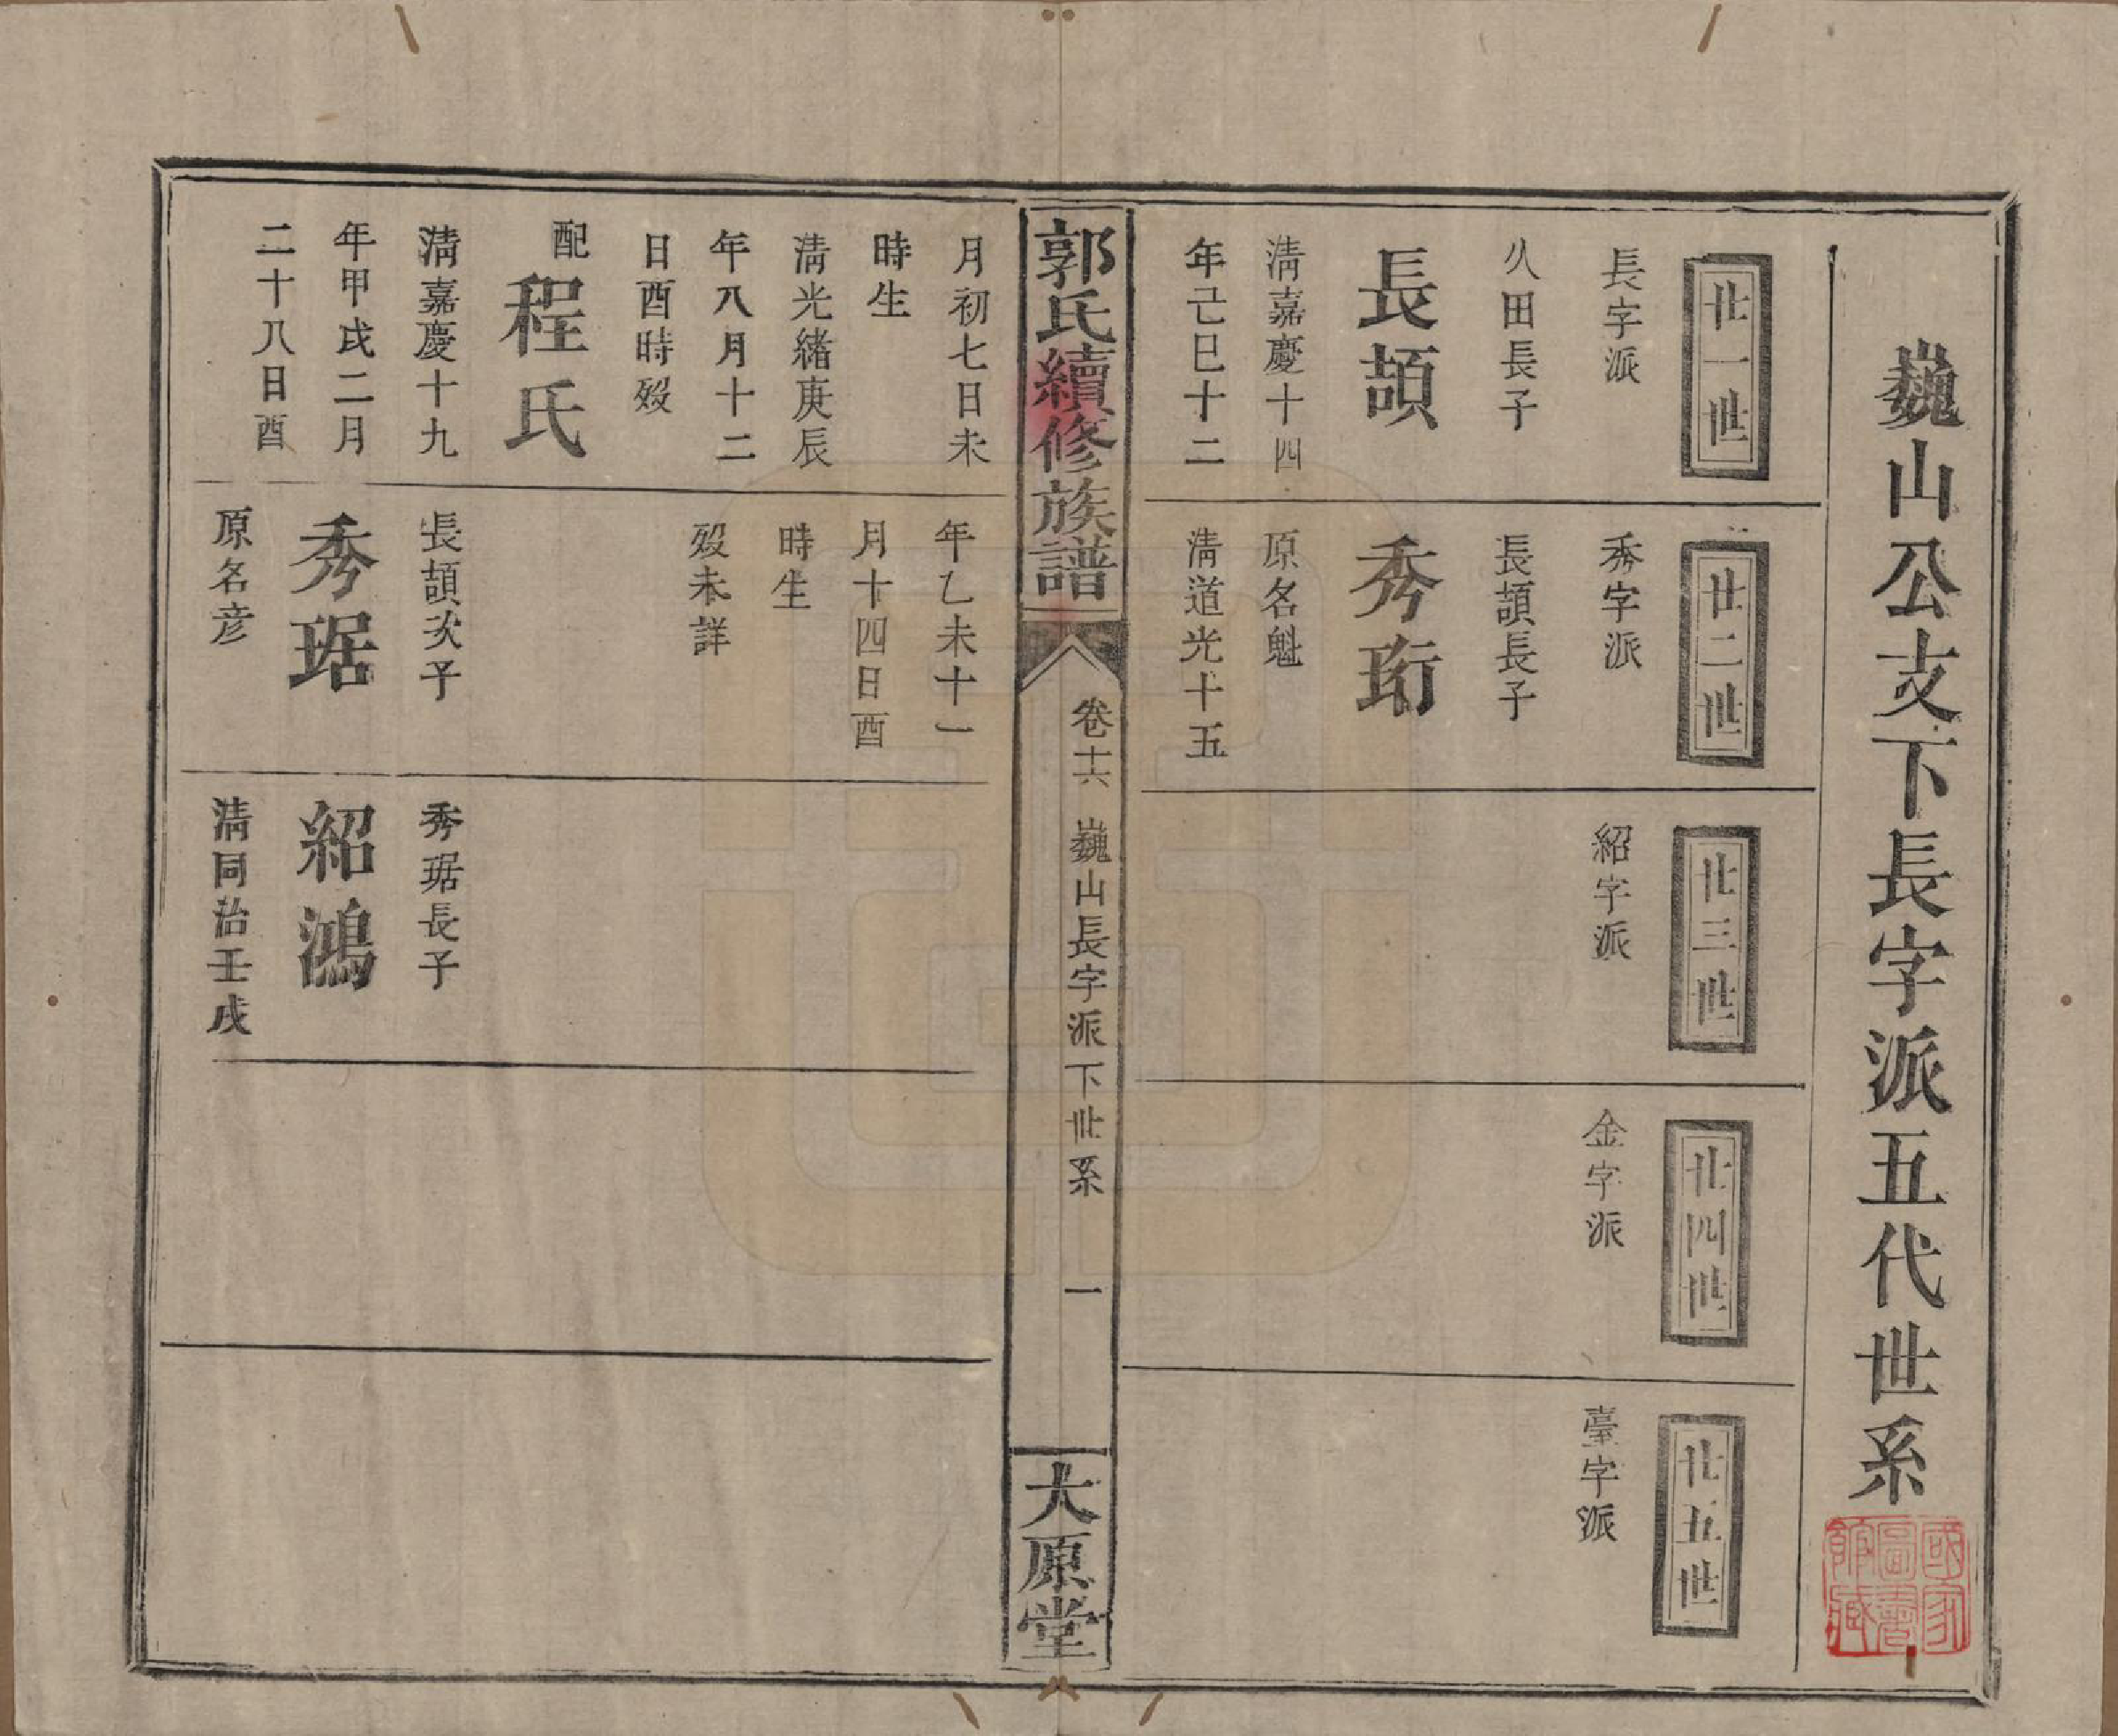 巍山公支下長字派五代世系
國家圖書館藏
廿一世
長字派
久田長子
長頡
清嘉慶十四
年己巳十二
廿二世
秀字派
長頡長子
秀珩
原名魁
清道光十五
廿三世
紹字派
廿四世
金字派
廿五世
臺字派
郭氏續修族譜
卷十六
巍山長字派下世系
一
太原堂
月初七日未
時生
清光緒庚辰
年八月十二
日酉時歿
配程氏
清嘉慶十九
年甲戌二月
二十八日酉
年乙未十一
月十四日酉
時生
歿未詳
長頡次子
秀琚
原名彦
秀琚長子
紹鴻
清同治壬戌